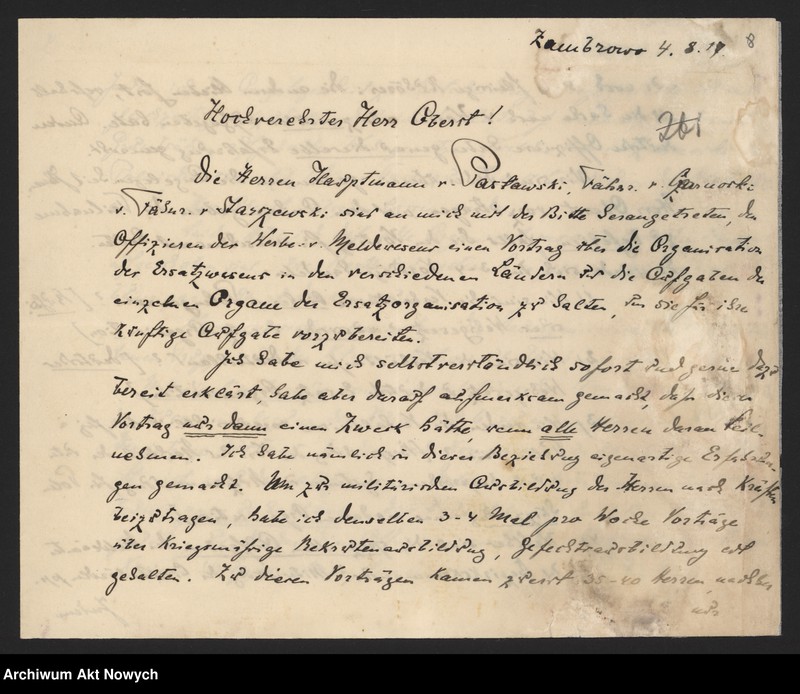 Zambrowo 4.8.17. 8
Hochverehrter Herr Oberst!
261
Die Herren Hauptmann v. Pasławski, Fähnr. v. Czarnocki
u. Fähnr. v. Starzewski sind an mich mit der Bitte herangetreten, den
Offizieren der Werbe- u. Meldewesens einen Vortrag über die Organisation
des Ersatzwesens in den verschiedenen Ländern und die Aufgaben der
einzelnen Organe der Ersatzorganisation zu halten, um sie für ihre
künftige Aufgabe vorzubereiten.
Ich habe mich selbstverständlich sofort und gerne dazu
bereit erklärt, habe aber darauf aufmerksam gemacht, daß dieser
Vortrag nur dann einen Zweck hätte, wenn alle Herren daran teil-
nehmen. Ich habe nämlich in dieser Beziehung eigenartige Erfahrun-
gen gemacht. Um zur militärischen Ausbildung der Herren nach Kräften
beizutragen, habe ich denselben 3-4 Mal pro Woche Vorträge
über Kriegsmäßige Rekrutenausbildung, Gefechtsausbildung ect
gehalten. Zu diesen Vorträgen kamen zuerst 35-40 Herren, nachher
nur
Archiwum Akt Nowych